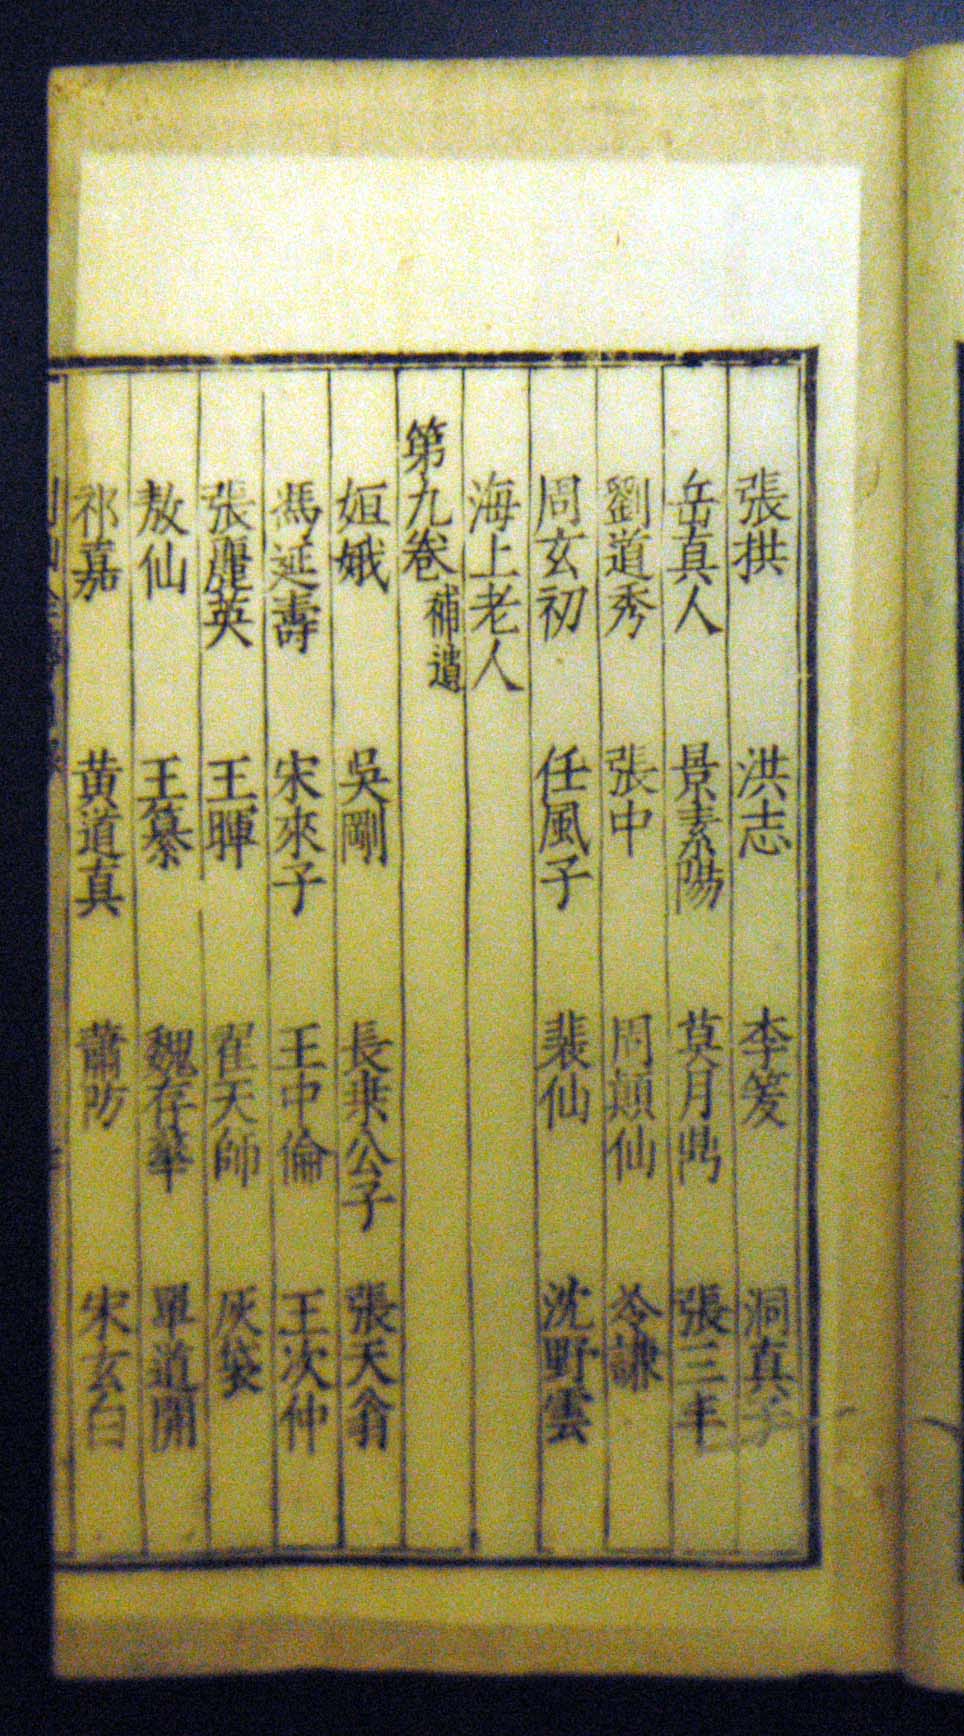 張拱 洪志 李笈 洞真子
岳真人 景素陽 莫月鼎 張三丰
劉道秀 張中 周顛仙 冷謙
周玄初 任風子 裴仙 沈野雲
海上老人
第九卷 補遺
姮娥 吳剛 長桒公子 張天翁
馮延壽 宋來子 王中倫 王次仲
張麗英 王暉 翟天師 灰袋
敖仙 王纂 魏存華 單道開
祁嘉 黄道真 蕭防 宋玄白